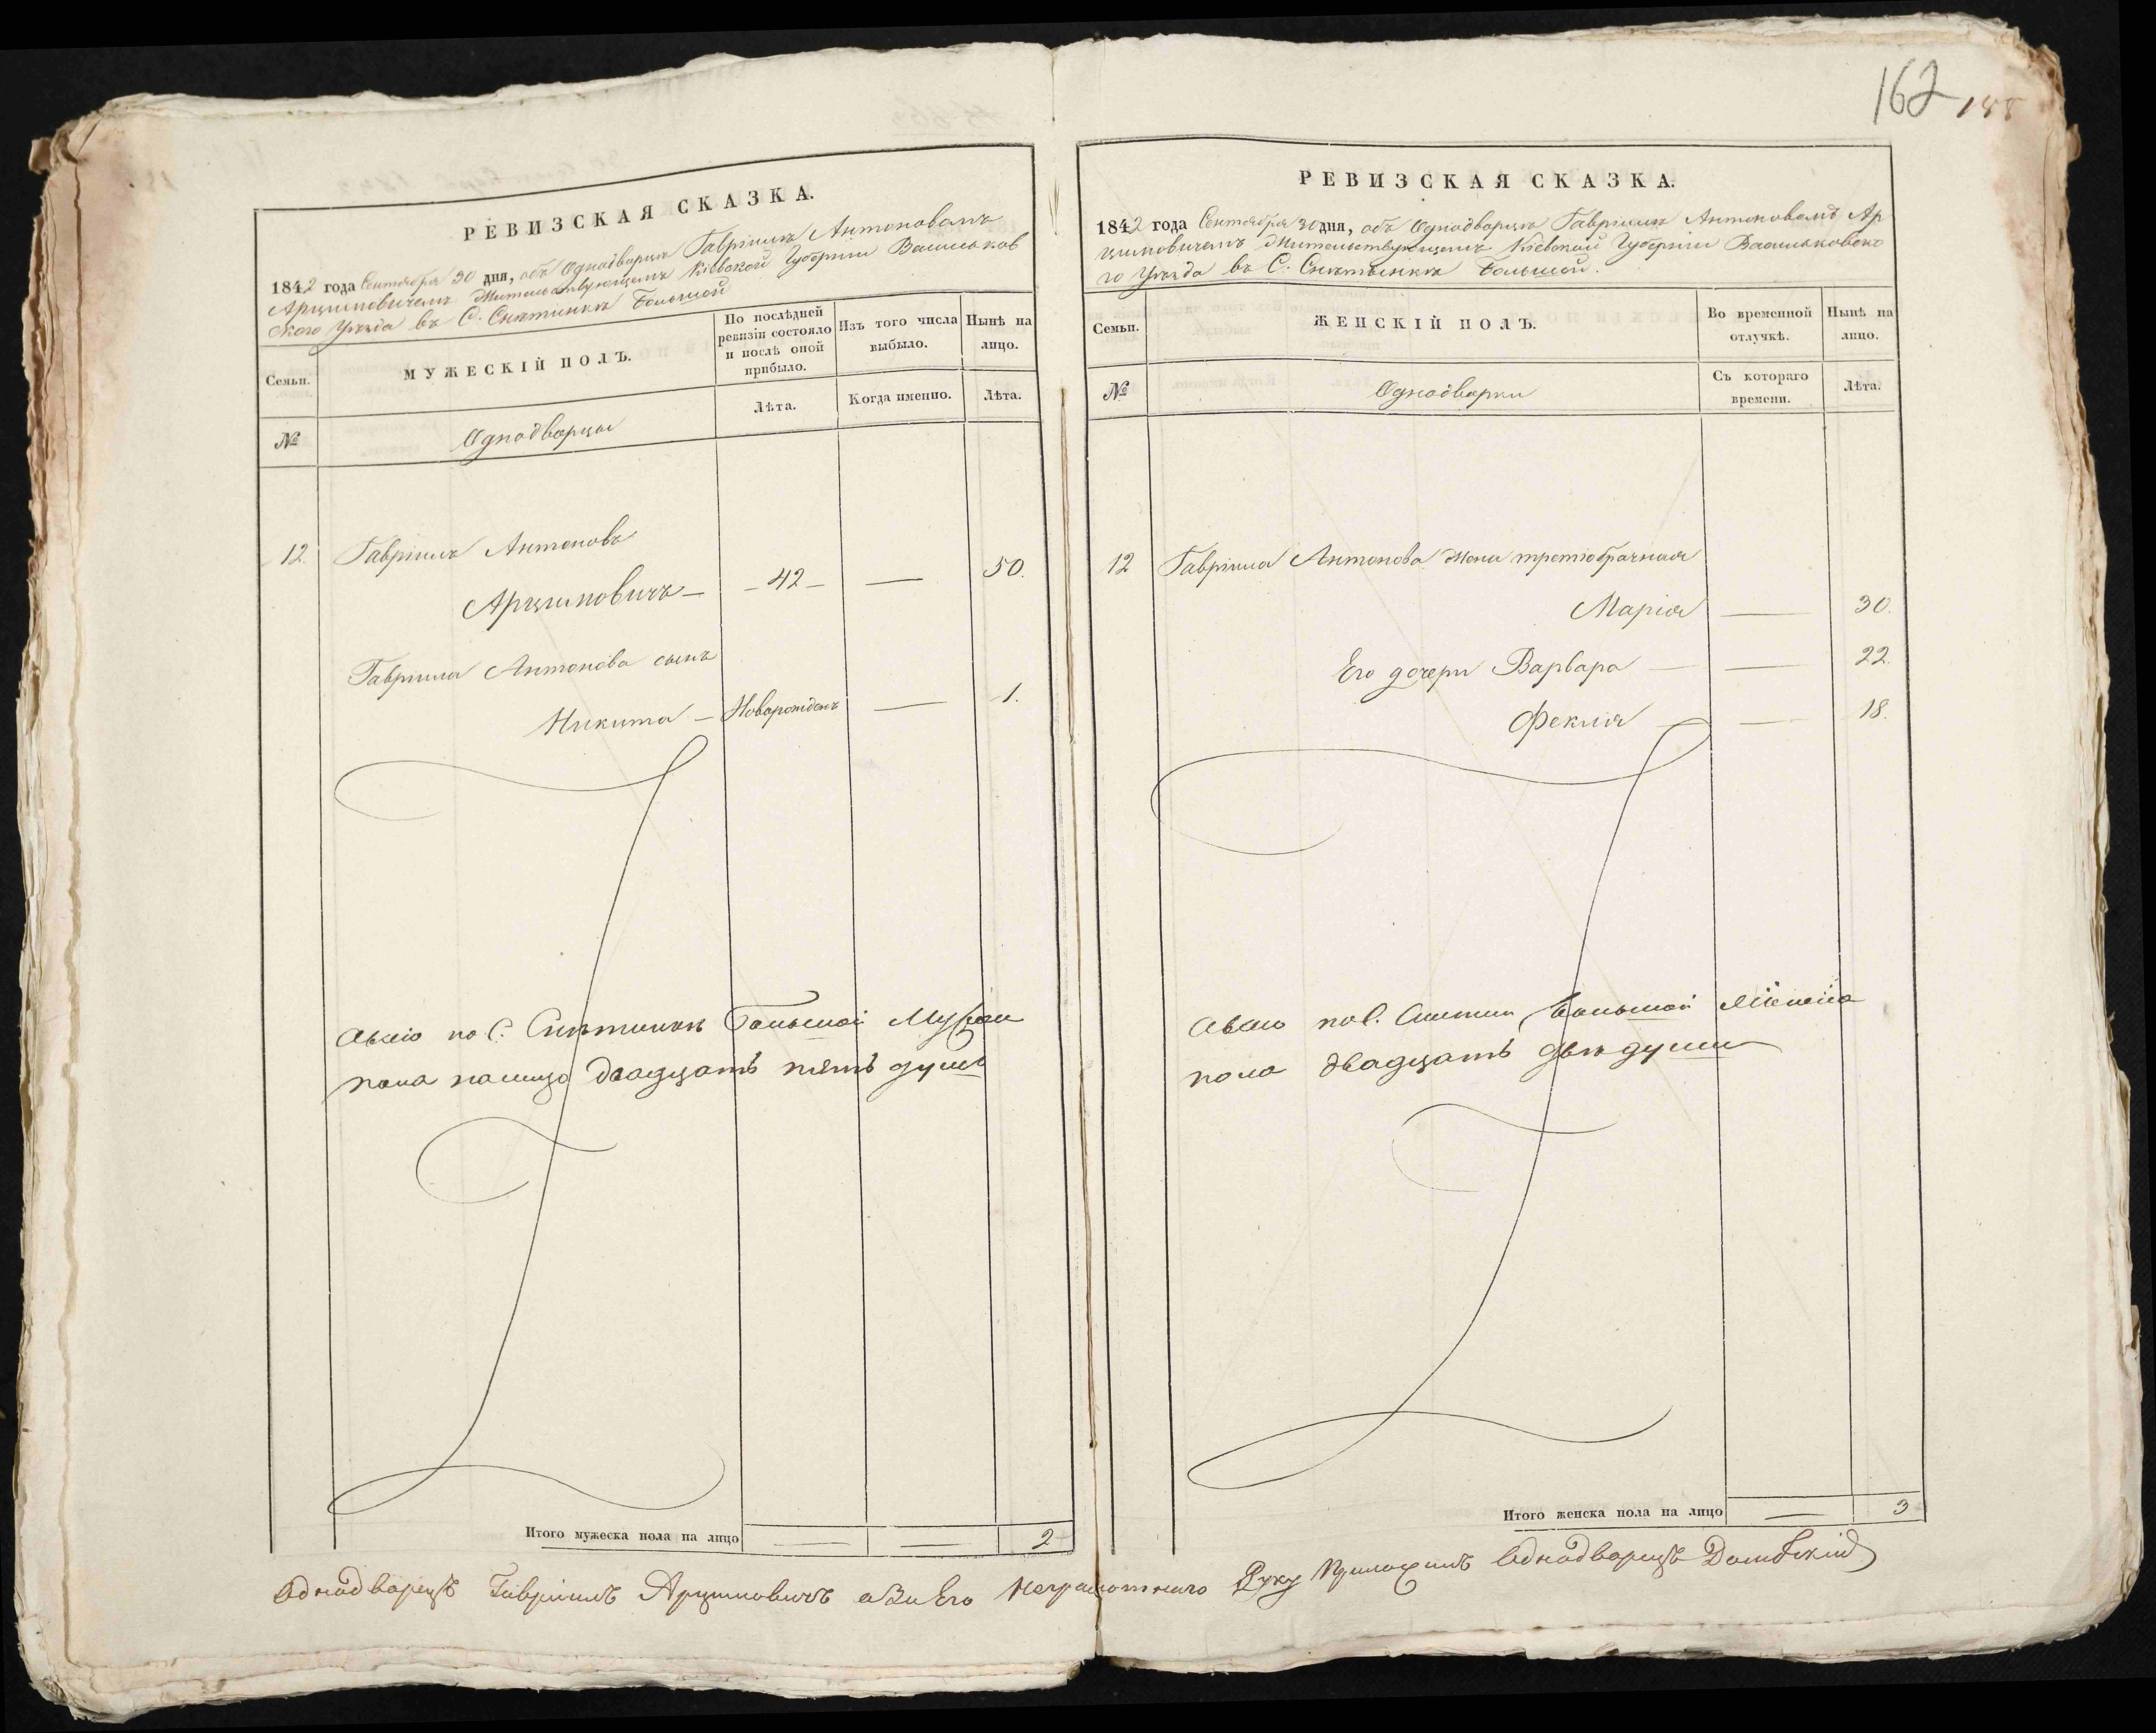 162 188
РЕВИЗСКАЯ СКАЗКА.
1842 года Сентября 30 дня, объ Однодворцѣ Гавріилѣ Антоновомъ
Арцимовичемъ Жительствующемъ Кіевской Губерніи Васильков
ского Уѣзда въ С. Снѣтинкѣ Большой
Семьи.
МУЖЕСКІЙ ПОЛЪ.
По послѣдней ревизіи состояло и послѣ оной прибыло.
Изъ того числа выбыло.
Нынѣ на лицо.
№
Однодворцы
Лѣта.
Когда именно.
Лѣта.
12. Гавріилъ Антоновъ
Арцимовичъ — — 42 — — 50.
Гавріила Антонова сынъ
Никита — Новорожденъ — 1.
Всего по С. Снѣтинкѣ Большой Мужска
пола налицо двадцать пять душъ
Итого мужеска пола на лицо — — 2
РЕВИЗСКАЯ СКАЗКА.
1842 года Сентября 30 дня, объ Однодворцѣ Гавріилѣ Антоновомъ Ар
цимовичемъ Жительствующемъ Кіевской Губерніи Васильковско
го Уѣзда въ С. Снѣтынкѣ Большой.
Семьи.
ЖЕНСКІЙ ПОЛЪ.
Во временной отлучкѣ.
Нынѣ на лицо.
№
Однодворки
Съ котораго времени.
Лѣта.
12 Гавріила Антонова жена третіобрачная
Марія — 30.
Его дочери Варвара — — 22.
Фекла — — 18.
Всего по С. Большой
пола двадцать двѣ души
Итого женска пола на лицо — 3
Однодворецъ Гавріилъ Арцимовичъ а За Его Неграмотнаго Руку Приложилъ Однодворецъ